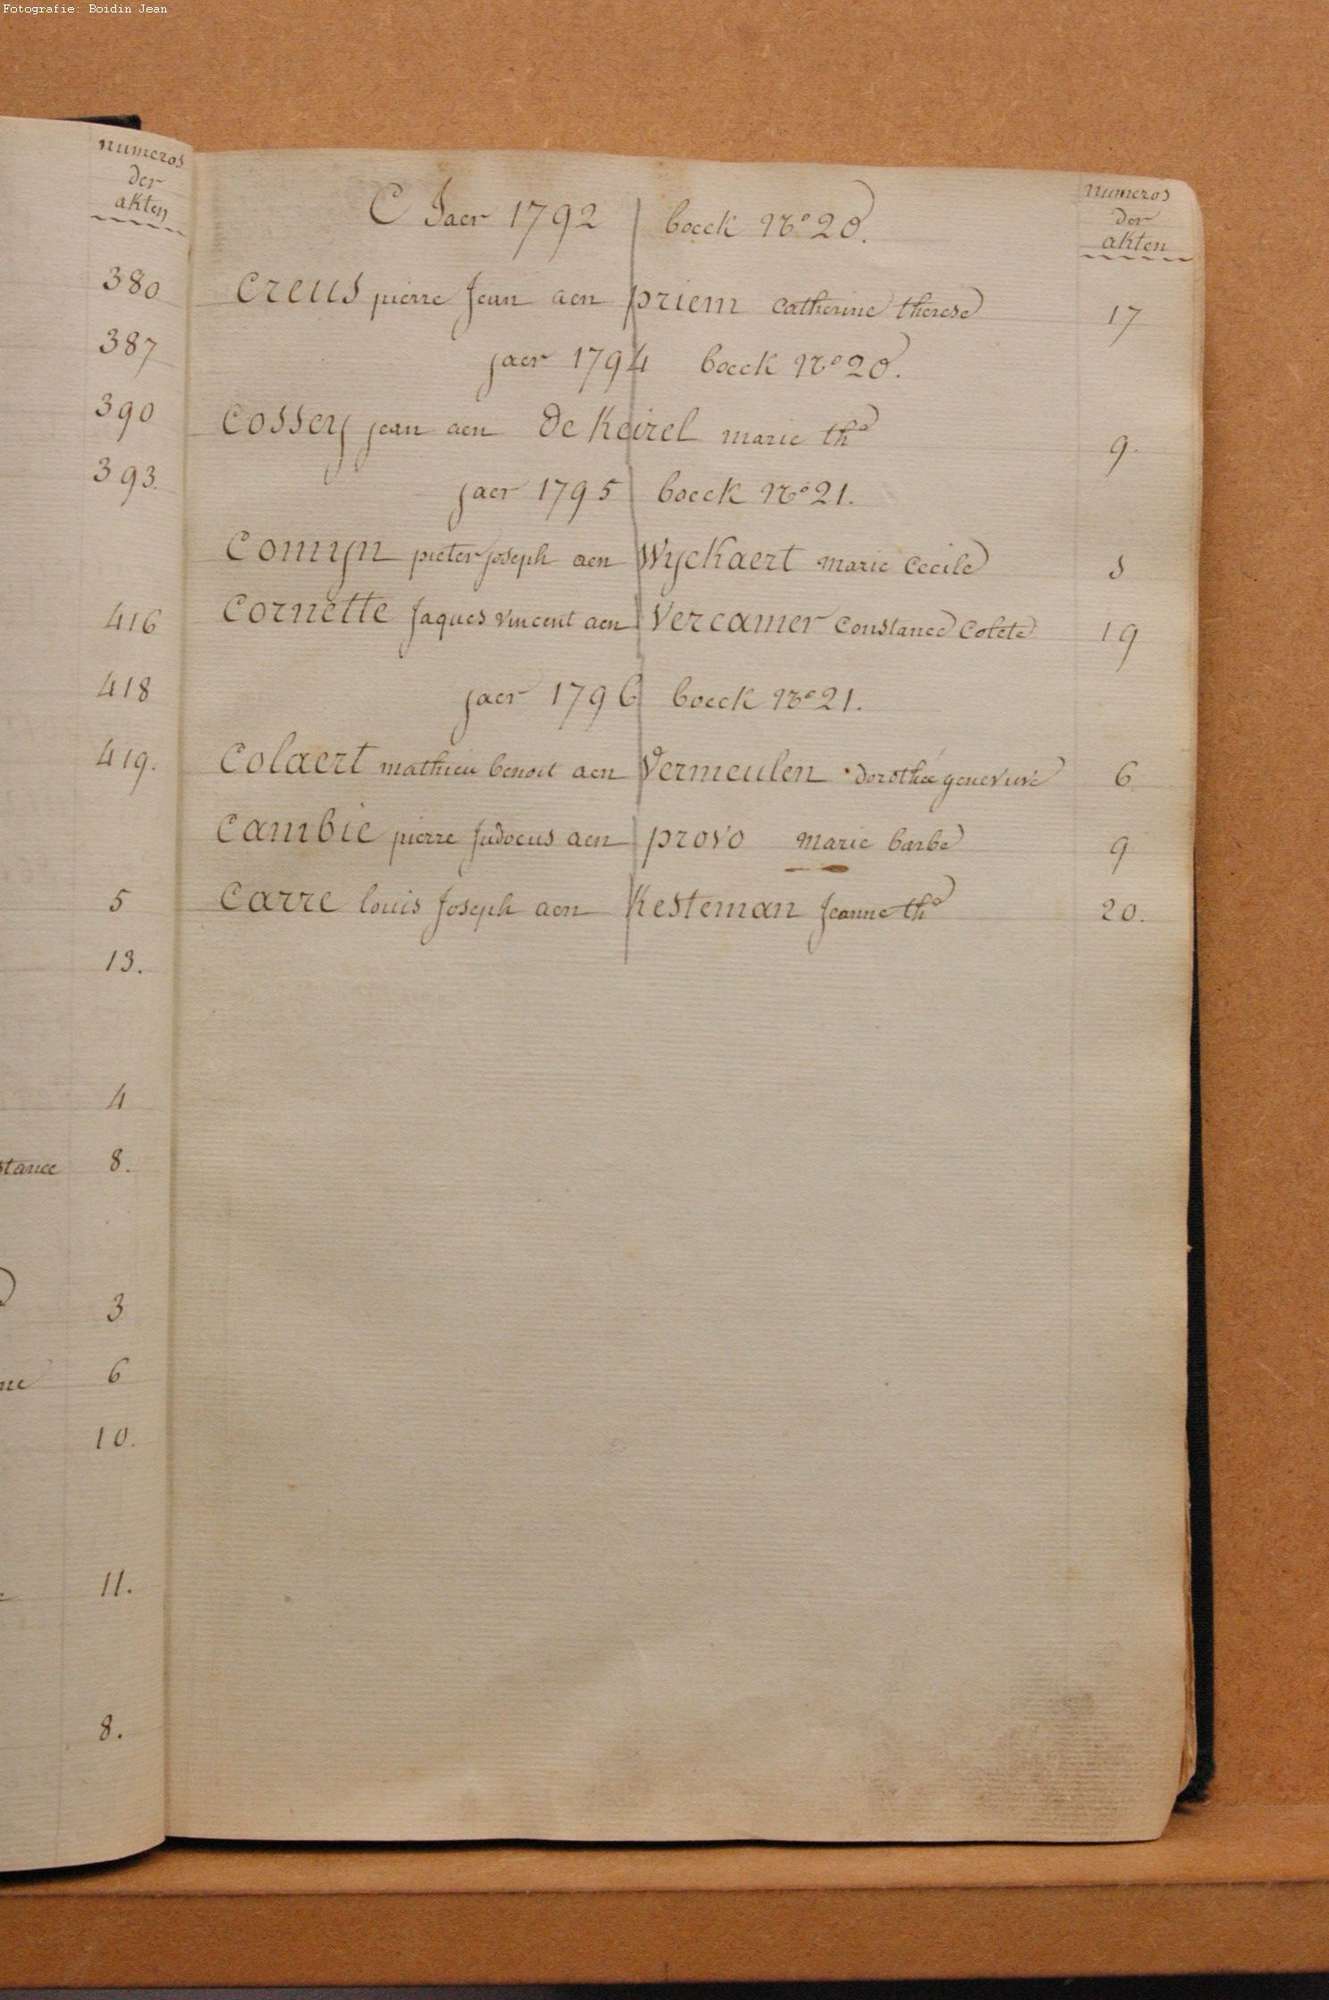 Fotografie: Boidin Jean
numeros
der
akten
380
387
390
393.
416
418
419.
5
13.
4
stance 8.
3
6
10.
11.
8.
C Jaer 1792 boeck No 20.
numeros
der
akten
Creus pierre Jean aen priem catherine therese 17
jaer 1794 boeck No 20.
Cossey jean aen De Keirel marie the 9.
jaer 1795 boeck No 21.
Comyn pieter joseph aen Wyckaert marie Cecile
Cornette Jaques vincent aen Vercamer Constance Colete 19
jaer 1796 boeck No 21.
Colaert mathieu benoit aen Vermeulen dorothée genevive 6
Cambie pierre Judocus aen provo marie barbe 9
Carre louis Joseph aen Kesteman Jeanne the 20.